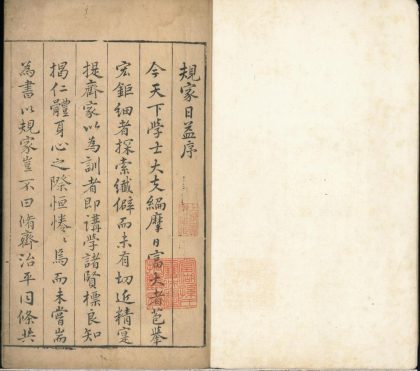 規家日益序
今天下學士大夫編摩日富大者苞舉
宏鉅細者探索纖僻而未有切近精寔
提齊家以為訓者即講學諸賢標良知
揭仁體身心之際恒惓〻焉而未嘗耑
為書以規家豈不曰脩齊治平同條共